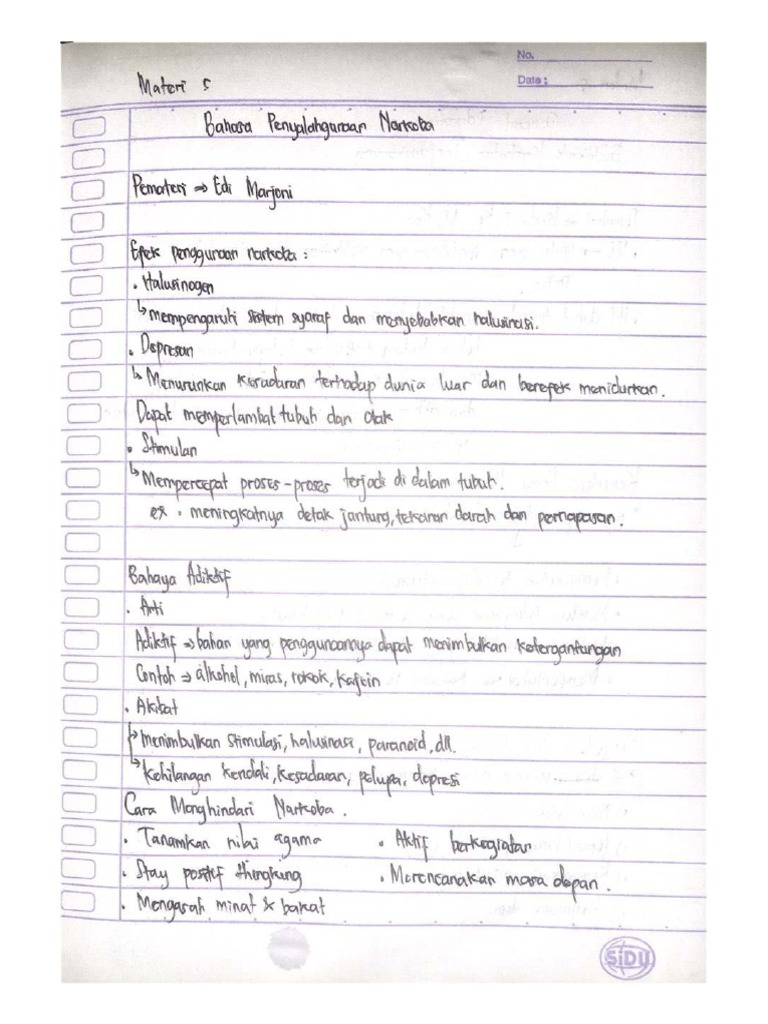 No.
Date :
Materi 5
Bahasa Penyalahgunaan Narkoba
Pemateri ⇒ Edi Marjoni
Efek penggunaan narkoba :
• Halusinogen
↳ mempengaruhi sistem syaraf dan menyebabkan halusinasi.
• Depresan
↳ Menurunkan kesadaran terhadap dunia luar dan berefek menidurkan.
Dapat memperlambat tubuh dan otak
• Stimulan
↳ Mempercepat proses-proses terjadi di dalam tubuh.
ex : meningkatnya detak jantung, tekanan darah dan pernapasan.
Bahaya Adiktif
• Arti
Adiktif ⇒ bahan yang penggunaannya dapat menimbulkan ketergantungan
Contoh ⇒ alkohol, miras, rokok, kafein
• Akibat
↳ menimbulkan stimulasi, halusinasi, paranoid, dll.
↳ Kehilangan kendali, kesadaran, pelupa, depresi
Cara Menghindari Narkoba.
• Tanamkan nilai agama • Aktif berkegiatan
• Stay positif thingking • Merencanakan masa depan.
• Mengasah minat & bakat
SiDU